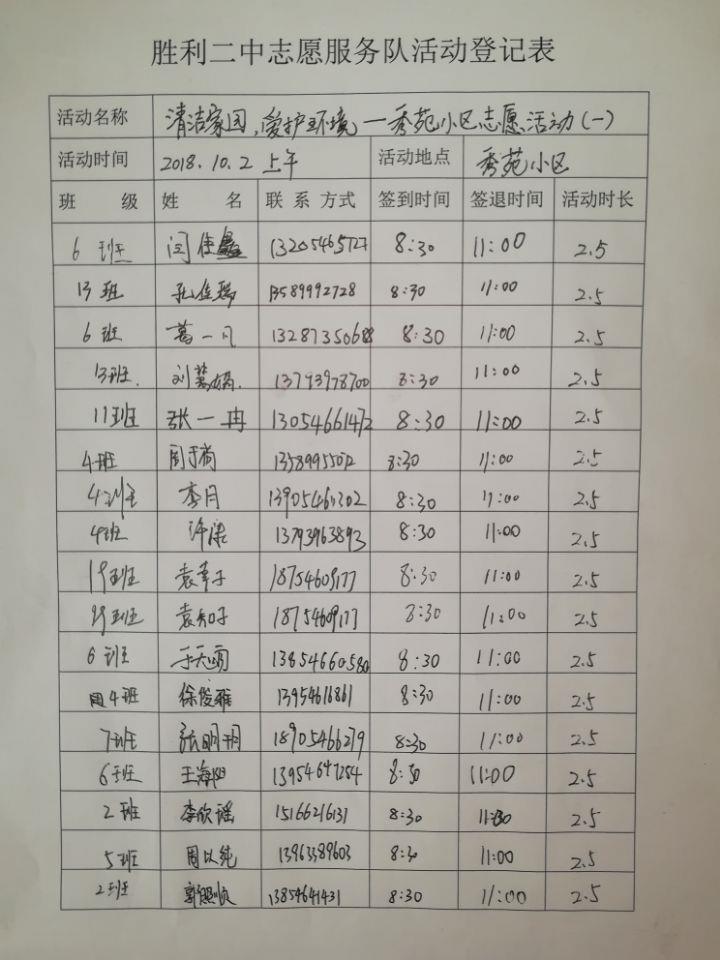 胜利二中志愿服务队活动登记表
活动名称 清洁家园,爱护环境—秀苑小区志愿活动(一)
活动时间 2018.10.2 上午 活动地点 秀苑小区
班 级 姓 名 联系方式 签到时间 签退时间 活动时长
6 班 闫佳鑫 13205465727 8:30 11:00 2.5
13 班 孔佳 13589992728 8:30 11:00 2.5
6 班 葛一凡 13287350688 8:30 11:00 2.5
13班. 刘 13793978700 8:30 11:00 2.5
11班 张一冉 13054661472 8:30 11:00 2.5
4班 周 13589955072 8:30 11:00 2.5
4班 李月 8:30 11:00 2.5
4班 许 13793963893 8:30 11:00 2.5
19班 袁 18754609177 8:30 11:00 2.5
班 袁知子 18754609177 8:30 11:00 2.5
6 班 于天 13854660580 8:30 11:00 2.5
4班 徐俊雅 13954616861 8:30 11:00 2.5
7班 张明明 18905466279 8:30 11:00 2.5
6班 王海阳 13954647254 8:30 11:00 2.5
2 班 李欣瑶 15166216131 8:30 2.5
5班 周以纯 13963389603 8:30 11:00 2.5
2班 郭 13854641431 8:30 11:00 2.5